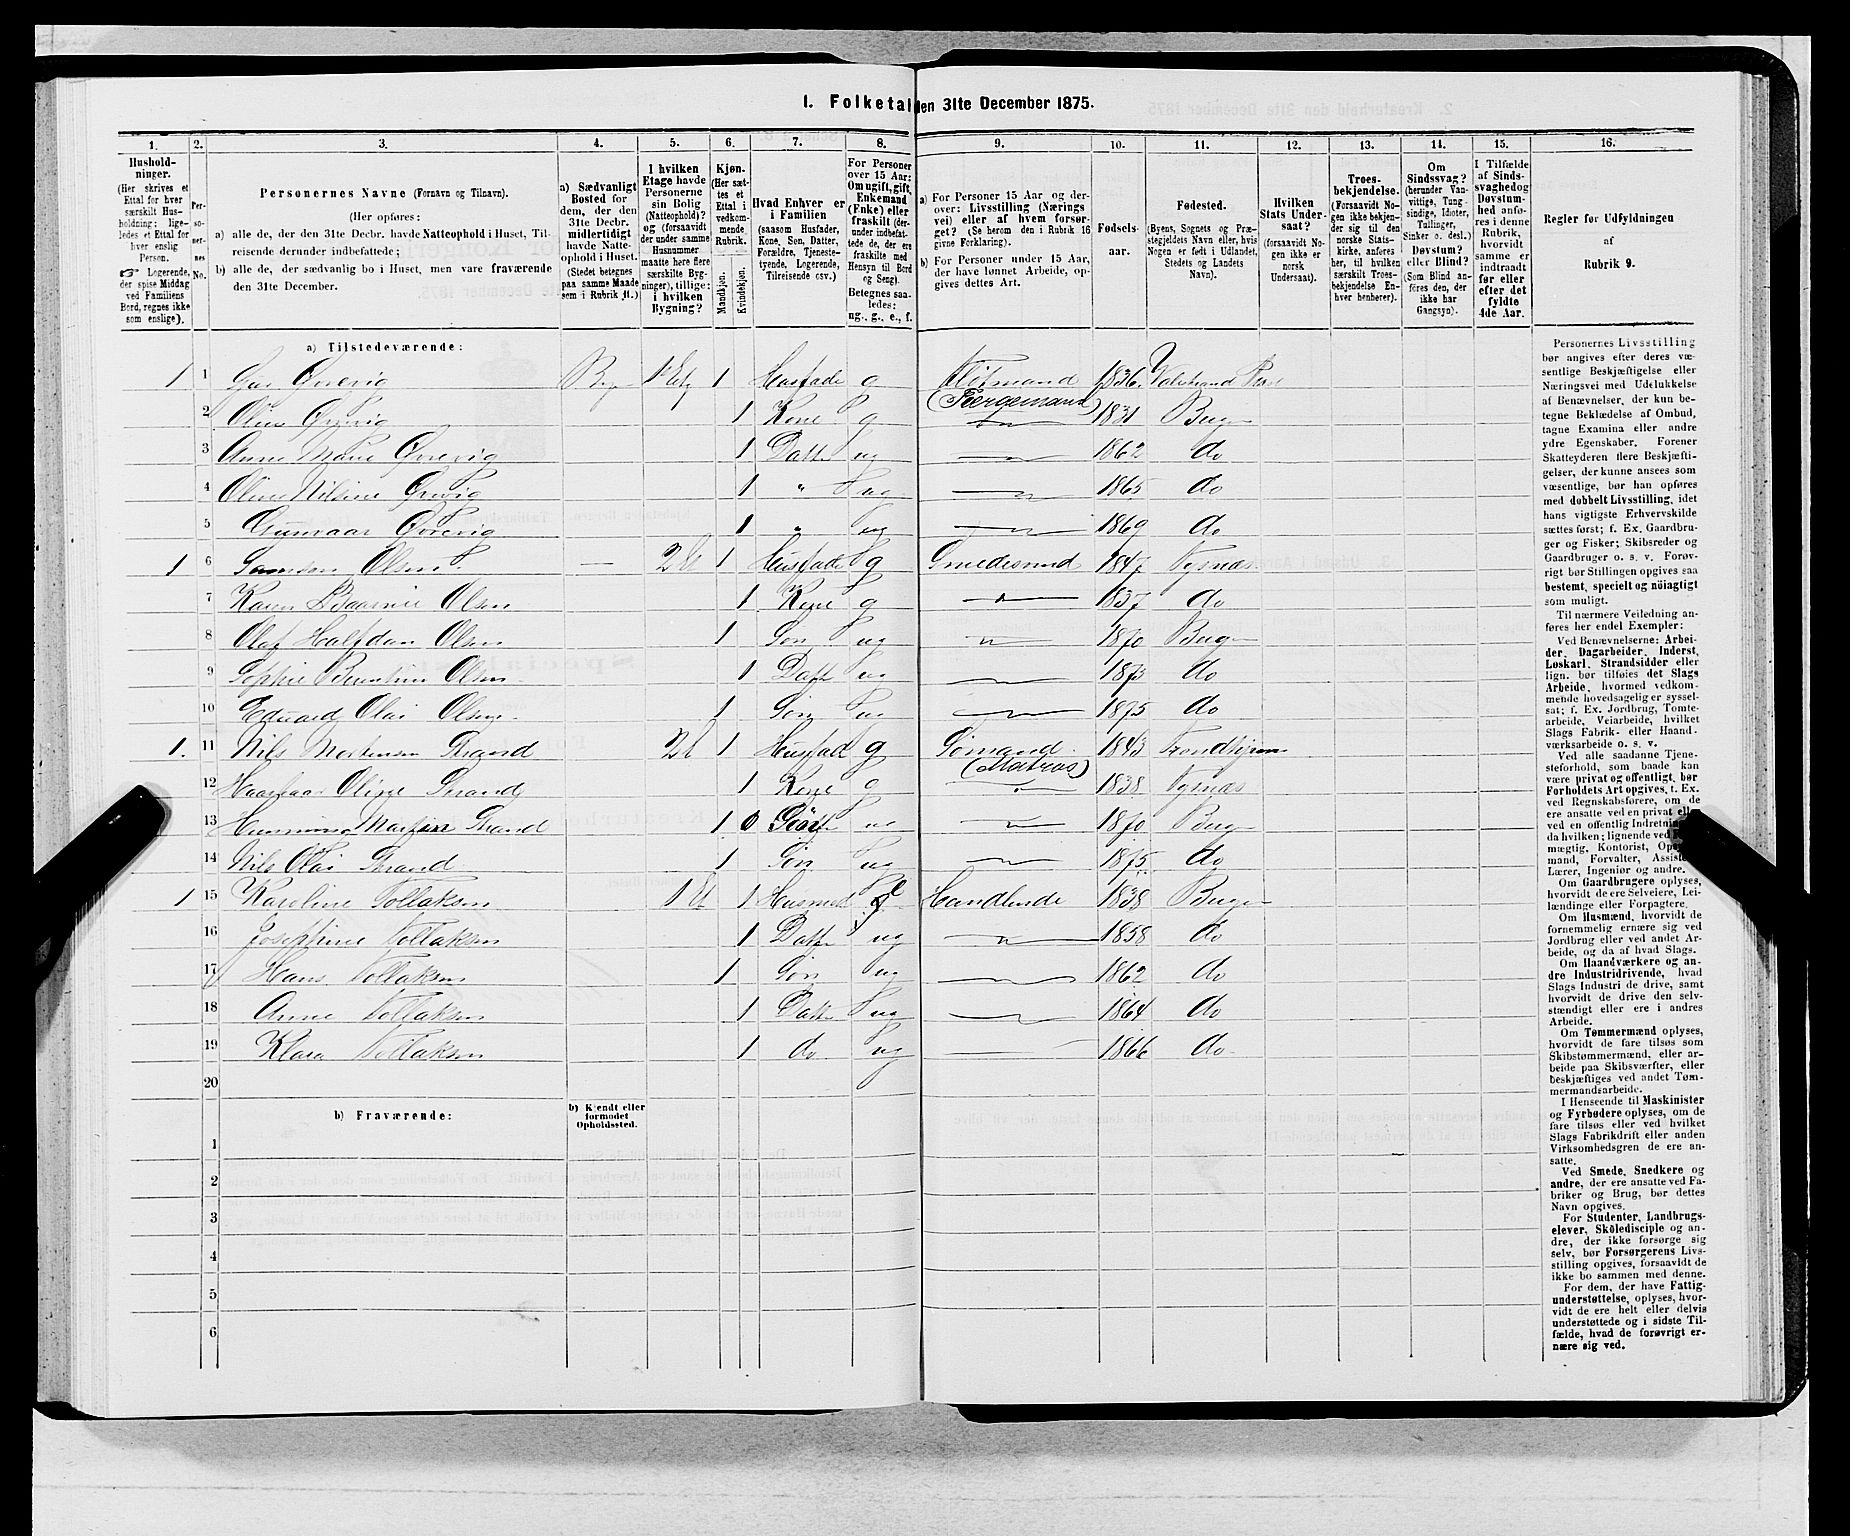 1. Folketal den 31te December 1875.
1. 2. 3. 4. 5. 6. 7. 8. 9. 10. 11. 12. 13. 14. 15. 16.
Hushold-
ninger.
(Her skrives et
Ettal for hver
særskilt Hus-
holdning; lige-
ledes et Ettal for
hver enslig
Person.
☞ Logerende,
der spise Middag
ved Familiens
Bord, regnes ikke
som enslige).
Per-
so-
ner-
nes
No.
Personernes Navne (Fornavn og Tilnavn).
(Her opføres:
a) alle de, der den 31te Decbr. havde Natteophold i Huset, Til-
reisende derunder indbefattede;
b) alle de, der sædvanlig bo i Huset, men vare fraværende
den 31te December.
a) Sædvanligt
Bosted for
dem, der den
31te Decbr.
midlertidigt
havde Natte-
ophold i Huset.
(Stedet betegnes
paa samme Maade
som i Rubrik 11.)
I hvilken
Etage havde
Personerne
sin Bolig
(Natteophold)?
og (forsaavidt
der under samme
Husnummer
matte here flere
særskilte Byg-
ninger), tillige:
i hvilken
Bygning?
Kjøn.
(Her sæt-
tes et
Ettal i
vedkom-
mende
Rubrik.
Mandkjøn.
Kvindekjøn.
Hvad Enhver er
i Familien
(saasom Husfader,
Kone, Søn, Datter,
Forældre, Tjeneste-
tyende, Logerende,
Tilreisende csv.)
For Personer
over 15 Aar:
Om ugift, gift,
Enkemand
(Enke) eller
fraskilt (der-
under indbefat-
tede de, der ere
fraskilte med
Hensyn til Bord
og Seng).
Betegnes saa-
ledes:
ug., g., e., f.
a) For Personer 15 Aar og der-
over: Livsstilling (Nærings
vei) eller af hvem forsør-
get? (Se herom den i Rubrik 16
givne Forklaring).
b) For Personer under 15 Aar,
der have lønnet Arbeide, op-
gives dettes Art.
Fødsels-
aar.
Fødested.
(Byens, Sognets og Præ-
stegjeldets Navn eller, hvis
Nogen er født i Udlandet,
Stedets og Landets
Navn).
Hvilken
Stats Under-
saat?
(forsaavidt No-
gen ikke er
norsk
Undersaat).
Troes-
bekjendelse.
(Forsaavidt No-
gen ikke bekjen-
der sig til den
norske Stats-
kirke, anføres
her, til hvilken
særskilt Troes-
bekjendelse En-
hver henhører).
Om
Sindssvag?
(herunder Van-
vittige, Tung-
sindige, Idioter,
Tullinger,
Sinker o. desl.)
Døvstum?
eller Blind?
(Som Blind an-
føres den, der
ikke har
Gangsyn).
I Tilfælde
af Sinds-
svaghed og
Døvstum-
hed anfø-
res i denne
Rubrik,
hvorvidt
samme er
indtraadt
før eller
efter det
fyldte
4de Aar.
Regler for Udfyldningen
af
Rubrik 9.
a) Tilstedeværende:
1 1 1 Husfade g 1836
(Færgemand)
2 Oline 1 Kone g 1831 Bergen
3 Anne Marie 1 Datt ug 1862 do
4 Oline Nilsine 1 " ug 1865 do
5 1 " ug 1869 do
1 6 Samson Olsen — 1 Husfade g Smedesvend 1847 Tysnæs
7 Karen Olsen 1 Kone g 1837 do
8 Olaf Halfdan Olsen 1 Søn ug 1870 Bergen
9 Sophie Olsen 1 Datt ug 1873 do
10 Eduard Olai Olsen 1 Søn ug 1875 do
1. 11 Nils Mortensen Strand 1 Husfad g Sømand 1843 Trondhjem
(Matros)
12 Oline Strand 1 Kone g 1838 Tysnæs
13 Henning Martin Strand 1 ug 1870 Bergen
14 Nils Olai Strand 1 Søn ug 1875 do
1 15 Karoline Tollaksen 1 Handlende 1838 Bergen
16 Josephine Tollaksen 1 Datt ug 1858 do
17 Hans Tollaksen 1 Søn ug 1862 do
18 Anne Tollaksen 1 Datt ug 1864 do
19 Klara Tollaksen 1 do. ug 1866 do
20
b) Fraværende:
b) Kjendt eller
formodet
Opholdssted.
1
2
3
4
5
6
Personernes Livsstilling
bør angives efter deres væ-
sentlige Beskjæftigelse eller
Næringsvei med Udelukkelse
af Benævnelser, der kun be-
tegne Beklædelse af Ombud,
tagne Examina eller andre
ydre Egenskaber. Forener
Skatteyderen flere Beskjæfti-
gelser, der kunne ansees som
væsentlige, bør han opføres
med dobbelt Livsstilling, idet
hans vigtigste Erhvervskilde
sættes først; f. Ex. Gaardbru-
ger og Fisker; Skibsreder og
Gaardbruger o. s. v. Forøv-
rigt bør Stillingen opgives saa
bestemt, specielt og nöiagtigt
som muligt.
Til nærmere Veiledning an-
føres her endel Exempler:
Ved Benævnelserne: Arbei-
der, Dagarbeider, Inderst,
Løskarl, Strandsidder eller
lign. bør tilføies det Slags
Arbeide, hvormed vedkom-
mende hovedsagelig er syssel-
sat; f. Ex. Jordbrug, Tomte-
arbeide, Veiarbeide, hvilket
Slags Fabrik- eller Haand-
værksarbeide o. s. v.
Ved alle saadanne Tjene-
steforhold, som baade kan
være privat og offentligt, bør
Forholdets Art opgives, t. Ex.
ved Regnskabsførere, om de
ere ansatte ved en privat
ved en offentlig
da hvilken; lignende ved
mægtig, Kontorist,
mand, Forvalter,
Lærer, Ingeniør og andre.
Om Gaardbrugere oplyses,
hvorvidt de ere Selveiere, Lei-
lændinge eller Forpagtere.
Om Husmænd, hvorvidt de
fornemmelig ernære sig ved
Jordbrug eller ved andet Ar-
beide, og da af hvad Slags.
Om Haandværkere og an-
dre Industridrivende, hvad
Slags Industri de drive, samt
hvorvidt de drive den selv-
stændigt eller ere i andres
Arbeide.
Om Tømmermænd oplyses,
hvorvidt de fare tilsøs som
Skibstømmermænd, eller ar-
beide paa Skibsværfter, eller
beskjæftiges ved andet Tøm-
mermandsarbeide.
I Henseende til Maskinister
og Fyrbødere oplyses, om de
fare tilsøs eller ved hvilket
Slags Fabrikdrift eller anden
Virksomhedsgren de ere an-
satte.
Ved Smede, Snedkere og
andre, der ere ansatte ved Fa-
briker og Brug, bør dettes
Navn opgives.
For Studenter, Landbrugs-
elever, Skoledisciple og an-
dre, der ikke forsørge sig
selv, bør Forsørgerens Livs-
stilling opgives, forsaavidt de
ikke bo sammen med denne.
For dem, der have Fattig-
understøttelse, oplyses, hvor-
vidt de ere helt eller delvis
understøttede og i sidste Til-
fælde, hvad de forøvrigt er-
nære sig ved.